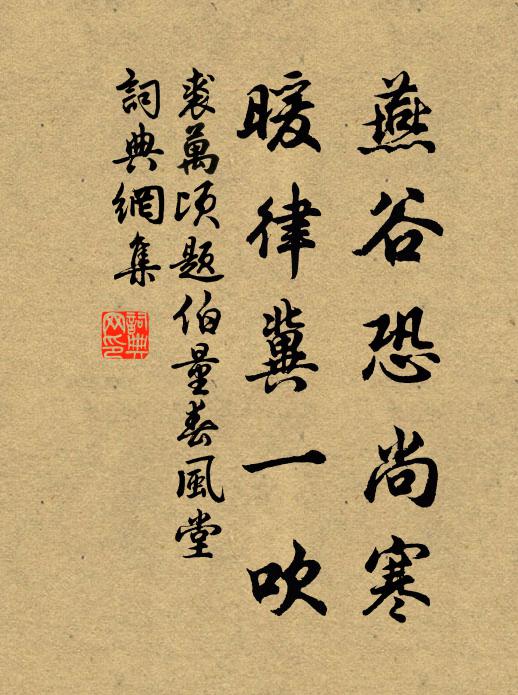 燕谷恐尚寒
暖律冀一吹
裘萬頃題伯量春風堂
詞典網集
詞典
网印